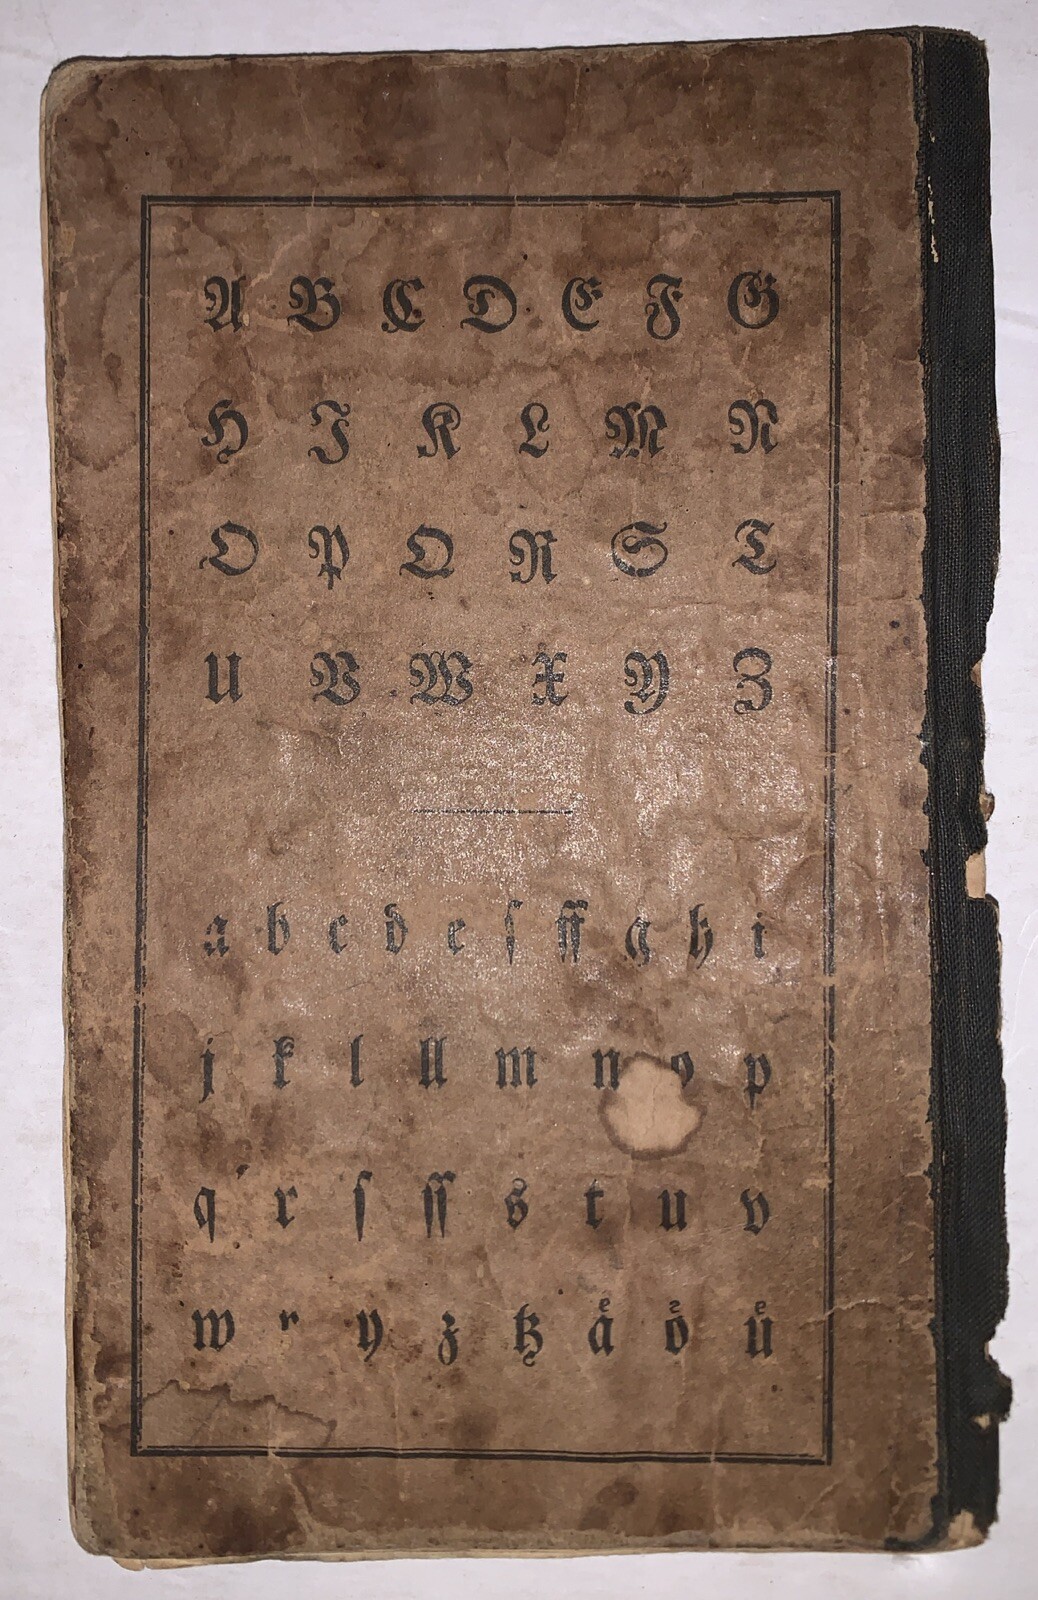 A B C D E F G
H I K L M N
O P Q R S T
U V W X Y Z
a b c d e f ff g h i
j k l ll m n o p
q r ſ ſſ s t u v
w x y z tz aͤ oͤ uͤ